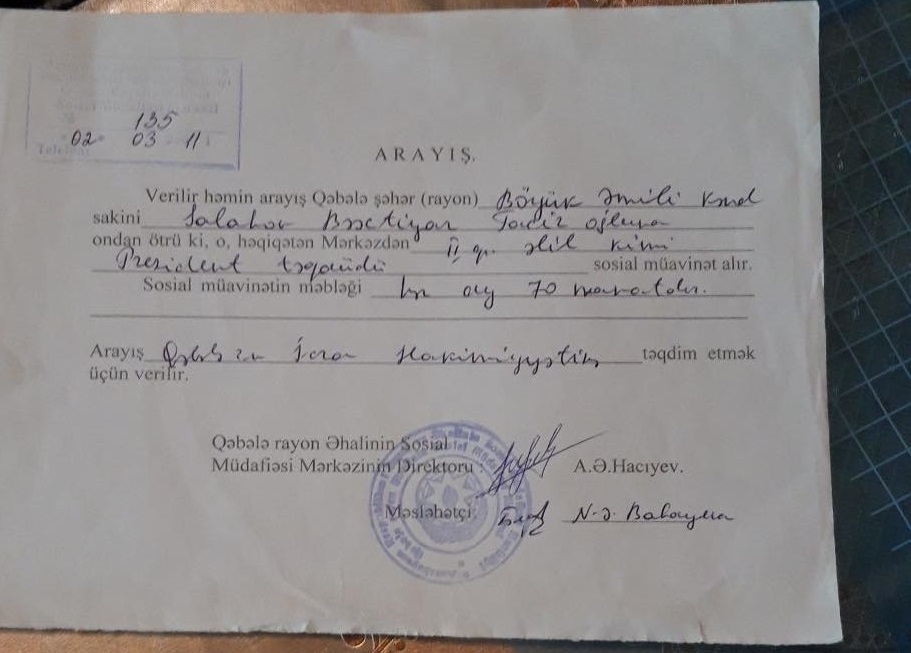 135
02 03 11
ARAYIŞ.
Verilir həmin arayış Qəbələ şəhər (rayon) Böyük Əmili kənd
sakini Salahov Bəxtiyar oğluna
ondan ötrü ki, o, həqiqətən Mərkəzdən II qr. əlil kimi
Prezident təqaüdü sosial müavinət alır.
Sosial müavinətin məbləği bir ay 70 manatdır.
Arayış İcra Hakimiyyətinə təqdim etmək
üçün verilir.
Qəbələ rayon Əhalinin Sosial
Müdafiəsi Mərkəzinin Direktoru: A.Ə.Hacıyev.
Məsləhətçi: N.Ə. Babayeva